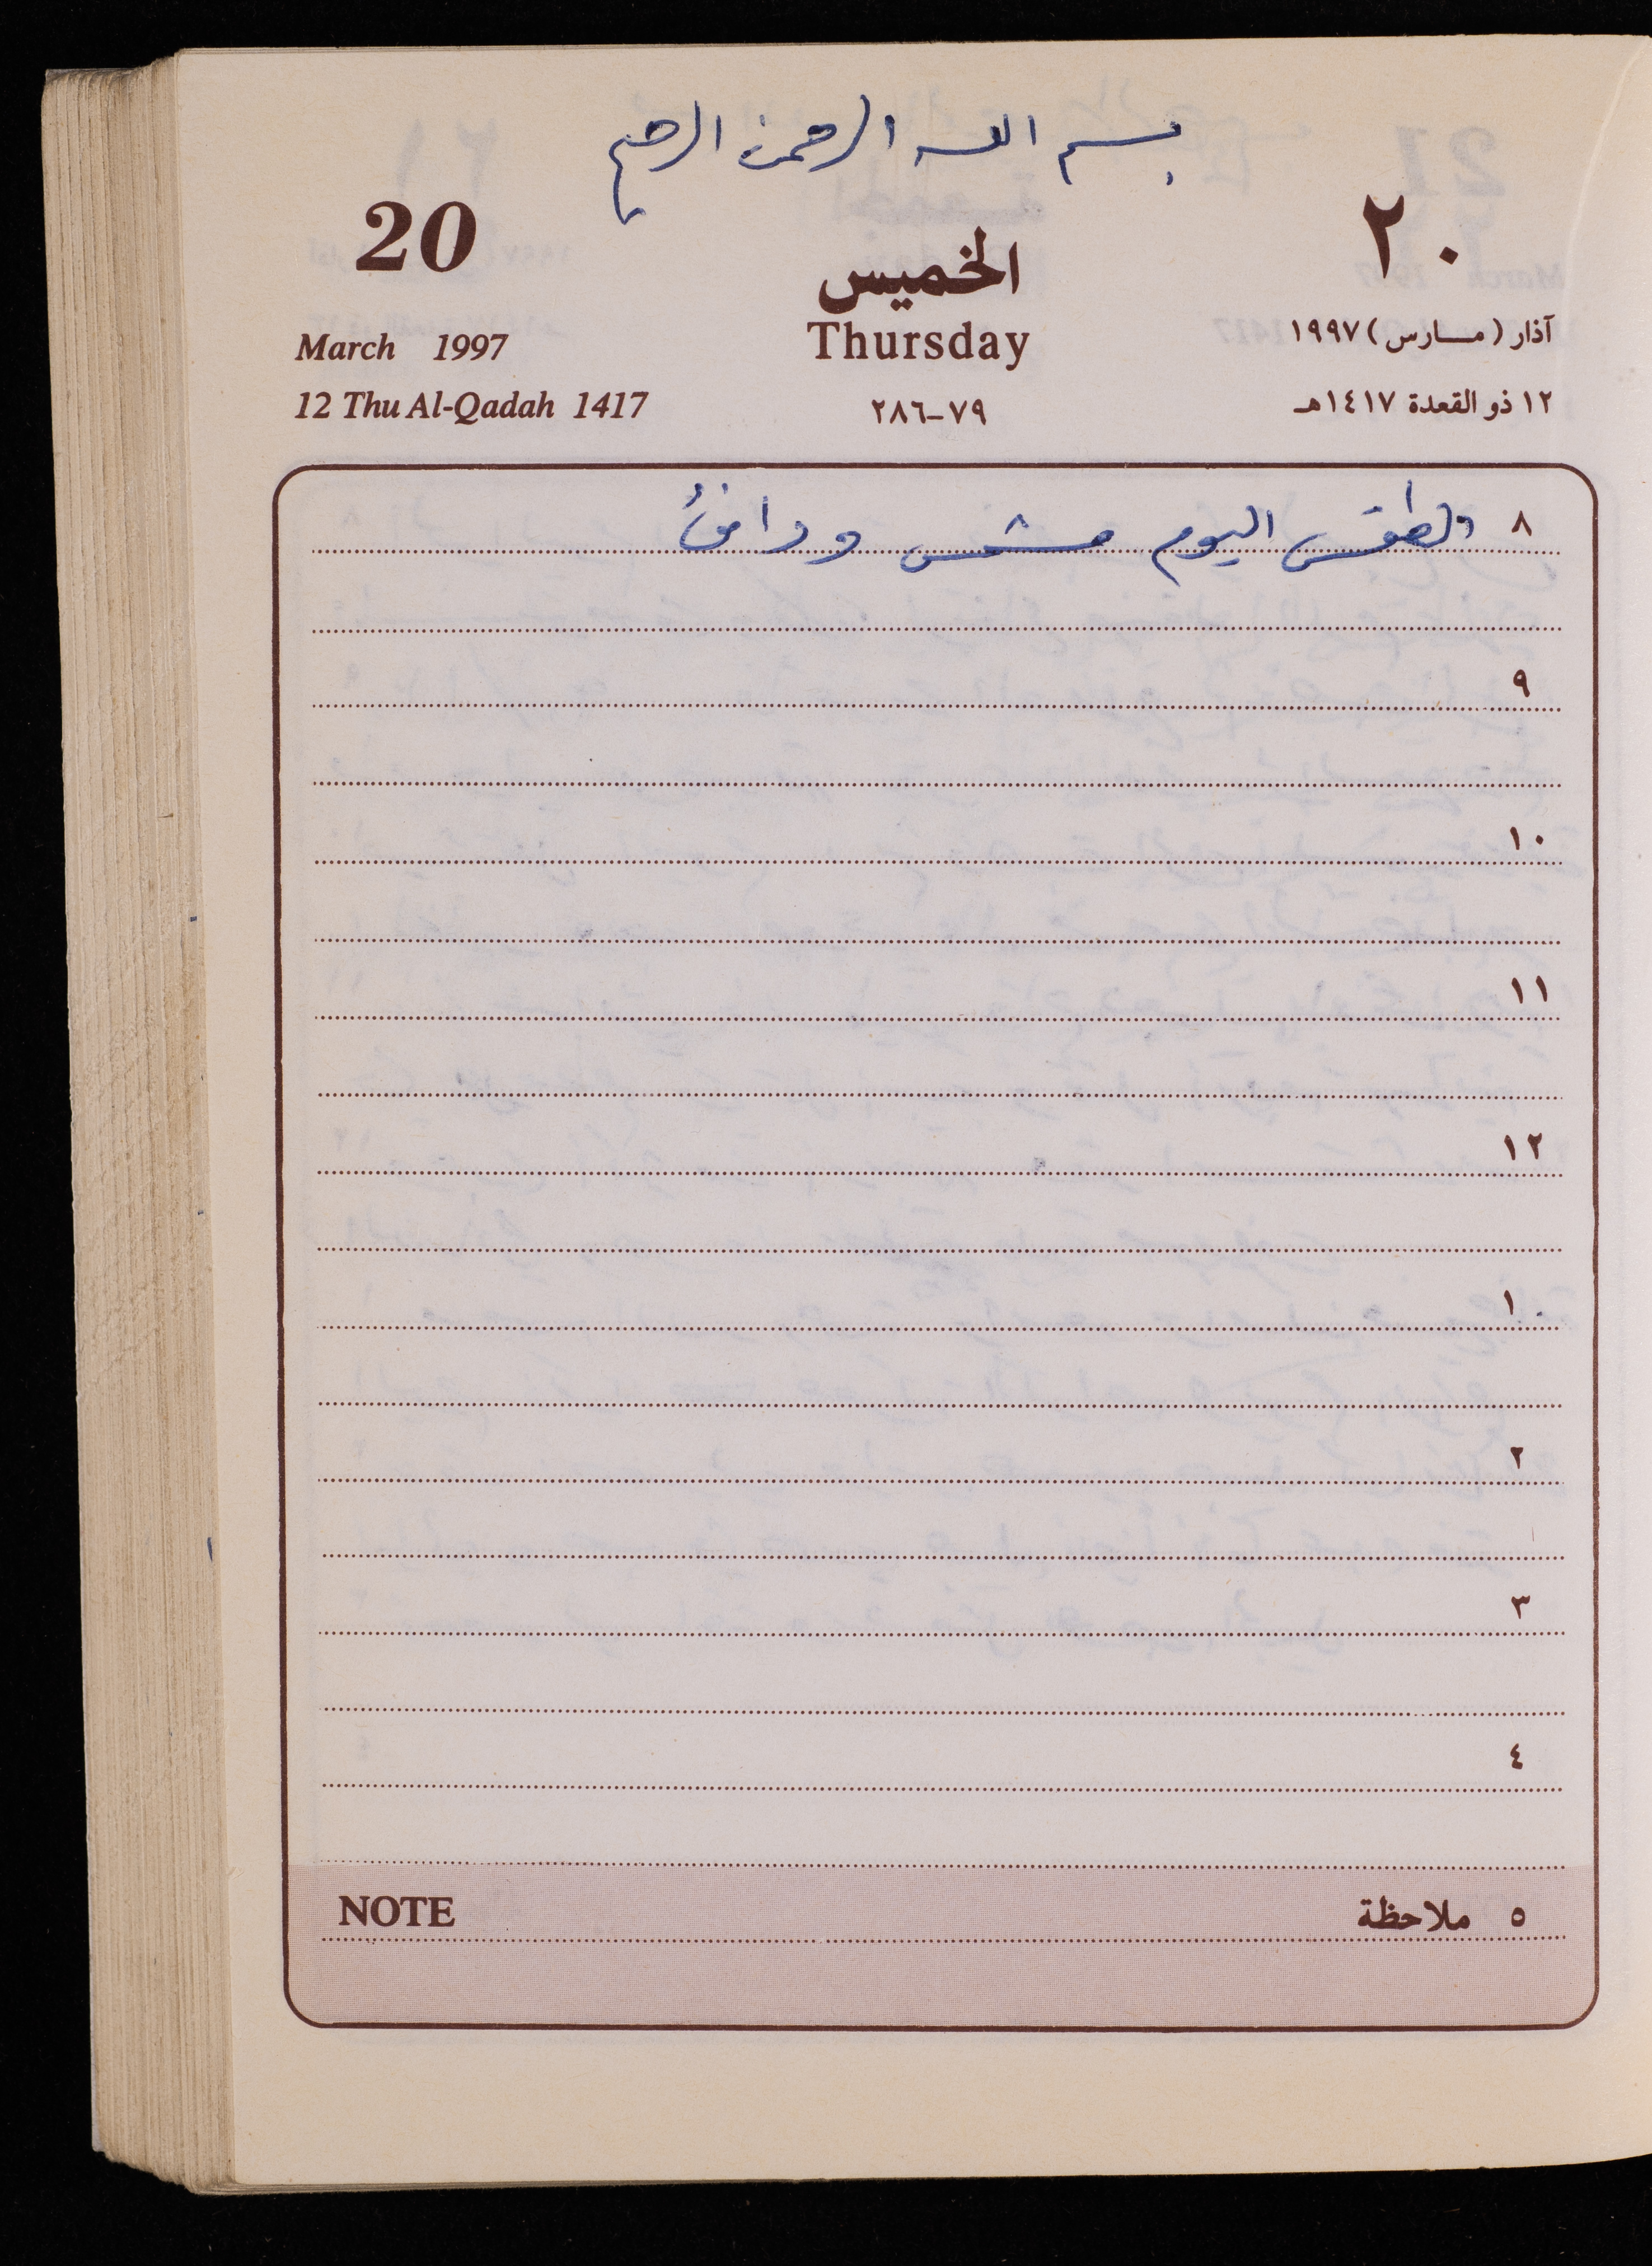 بسم الله الرحمن الرحيم
20 ٢٠
الخميس
Thursday
March 1997 آذار (مارس) ١٩٩٧
12 Thu Al-Qadah 1417 ٧٩-٢٨٦ ١٢ ذو القعدة ١٤١٧هـ
٨ الطقس اليوم مشمس ودافئ
٩
١٠
١١
١٢
١٠
٢
٣
٤
NOTE ٥ ملاحظة